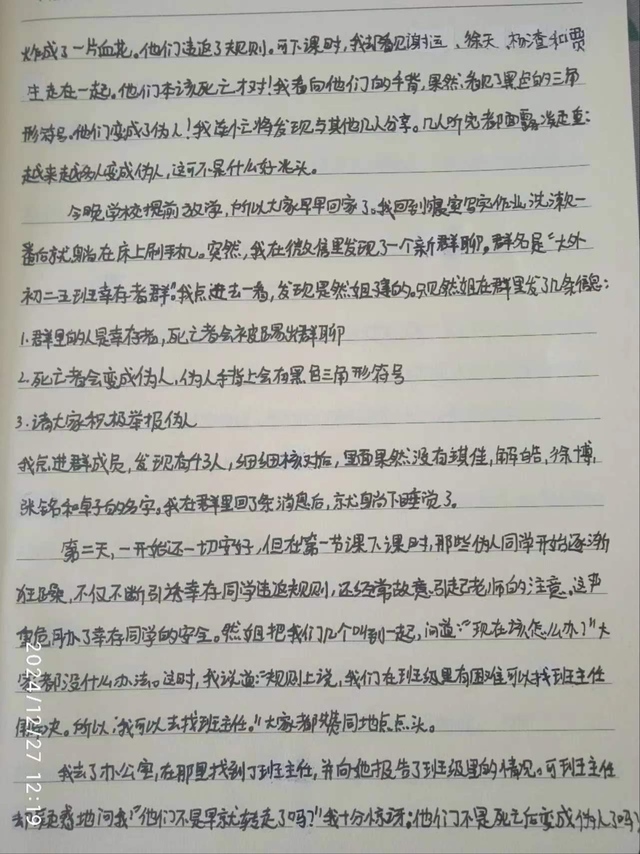 炸成了一片血花。他们违返了规则。可下课时,我却看见谢运、徐天、杨渣和贾
生走在一起。他们本该死亡才对!我看向他们的手背,果然,看见了黑色的三角
形符号。他们变成了伪人!我连忙将发现与其他几人分享。几人听完都面露凝重:
越来越多人变成伪人,这可不是什么好兆头。
今晚学校提前放学,所以大家早早回家了。我回到寝室写完作业,洗漱一
番后就躺在床上刷手机。突然,我在微信里发现了一个新群聊。群名是"大外
初二五班幸存者群"。我点进去一看,发现是然姐建的。只见然姐在群里发了几条信息:
1.群里的人是幸存者,死亡者会被踢出群聊
2.死亡者会变成伪人,伪人手背上会有黑色三角形符号
3.请大家积极举报伪人
我点进群成员,发现有43人,细细核对后,里面果然没有琪佳,解皓,徐博,
张铭和卓子的名字。我在群里回了条消息后,就躺下睡觉了。
第二天,一开始还一切安好,但在第一节课下课时,那些伪人同学开始逐渐
狂躁,不仅不断引诱幸存同学违返规则,还经常故意引起老师的注意。这严
重危及了幸存同学的安全。然姐把我们几个叫到一起,问道:"现在该怎么办?"大
家都没什么办法。这时,我说道:"规则上说,我们在班级里有困难可以找班主任
解决。所以,我可以去找班主任。"大家都赞同地点点头。
我去了办公室,在那里找到了班主任,并向她报告了班级里的情况。可班主任
却疑惑地问我:"他们不是早就转走了吗?"我十分惊讶:他们不是死亡后变成伪人了吗?
2024/12/27 12:19